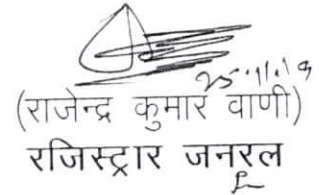 25.11.19
(राजेन्द्र कुमार वाणी)
रजिस्ट्रार जनरल